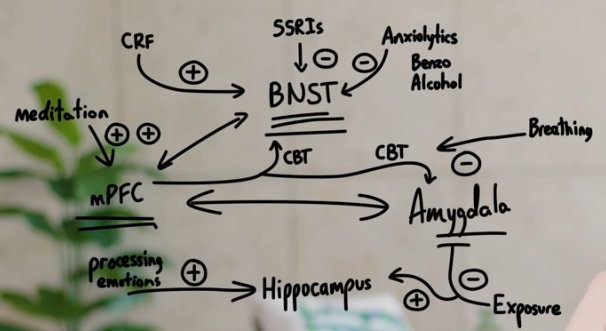 SSRIs
CRF
Anxiolytics
Benzo
Alcohol
BNST
Meditation
Breathing
CBT
CBT
mPFC
Amygdala
processing
emotions
Hippocampus
Exposure